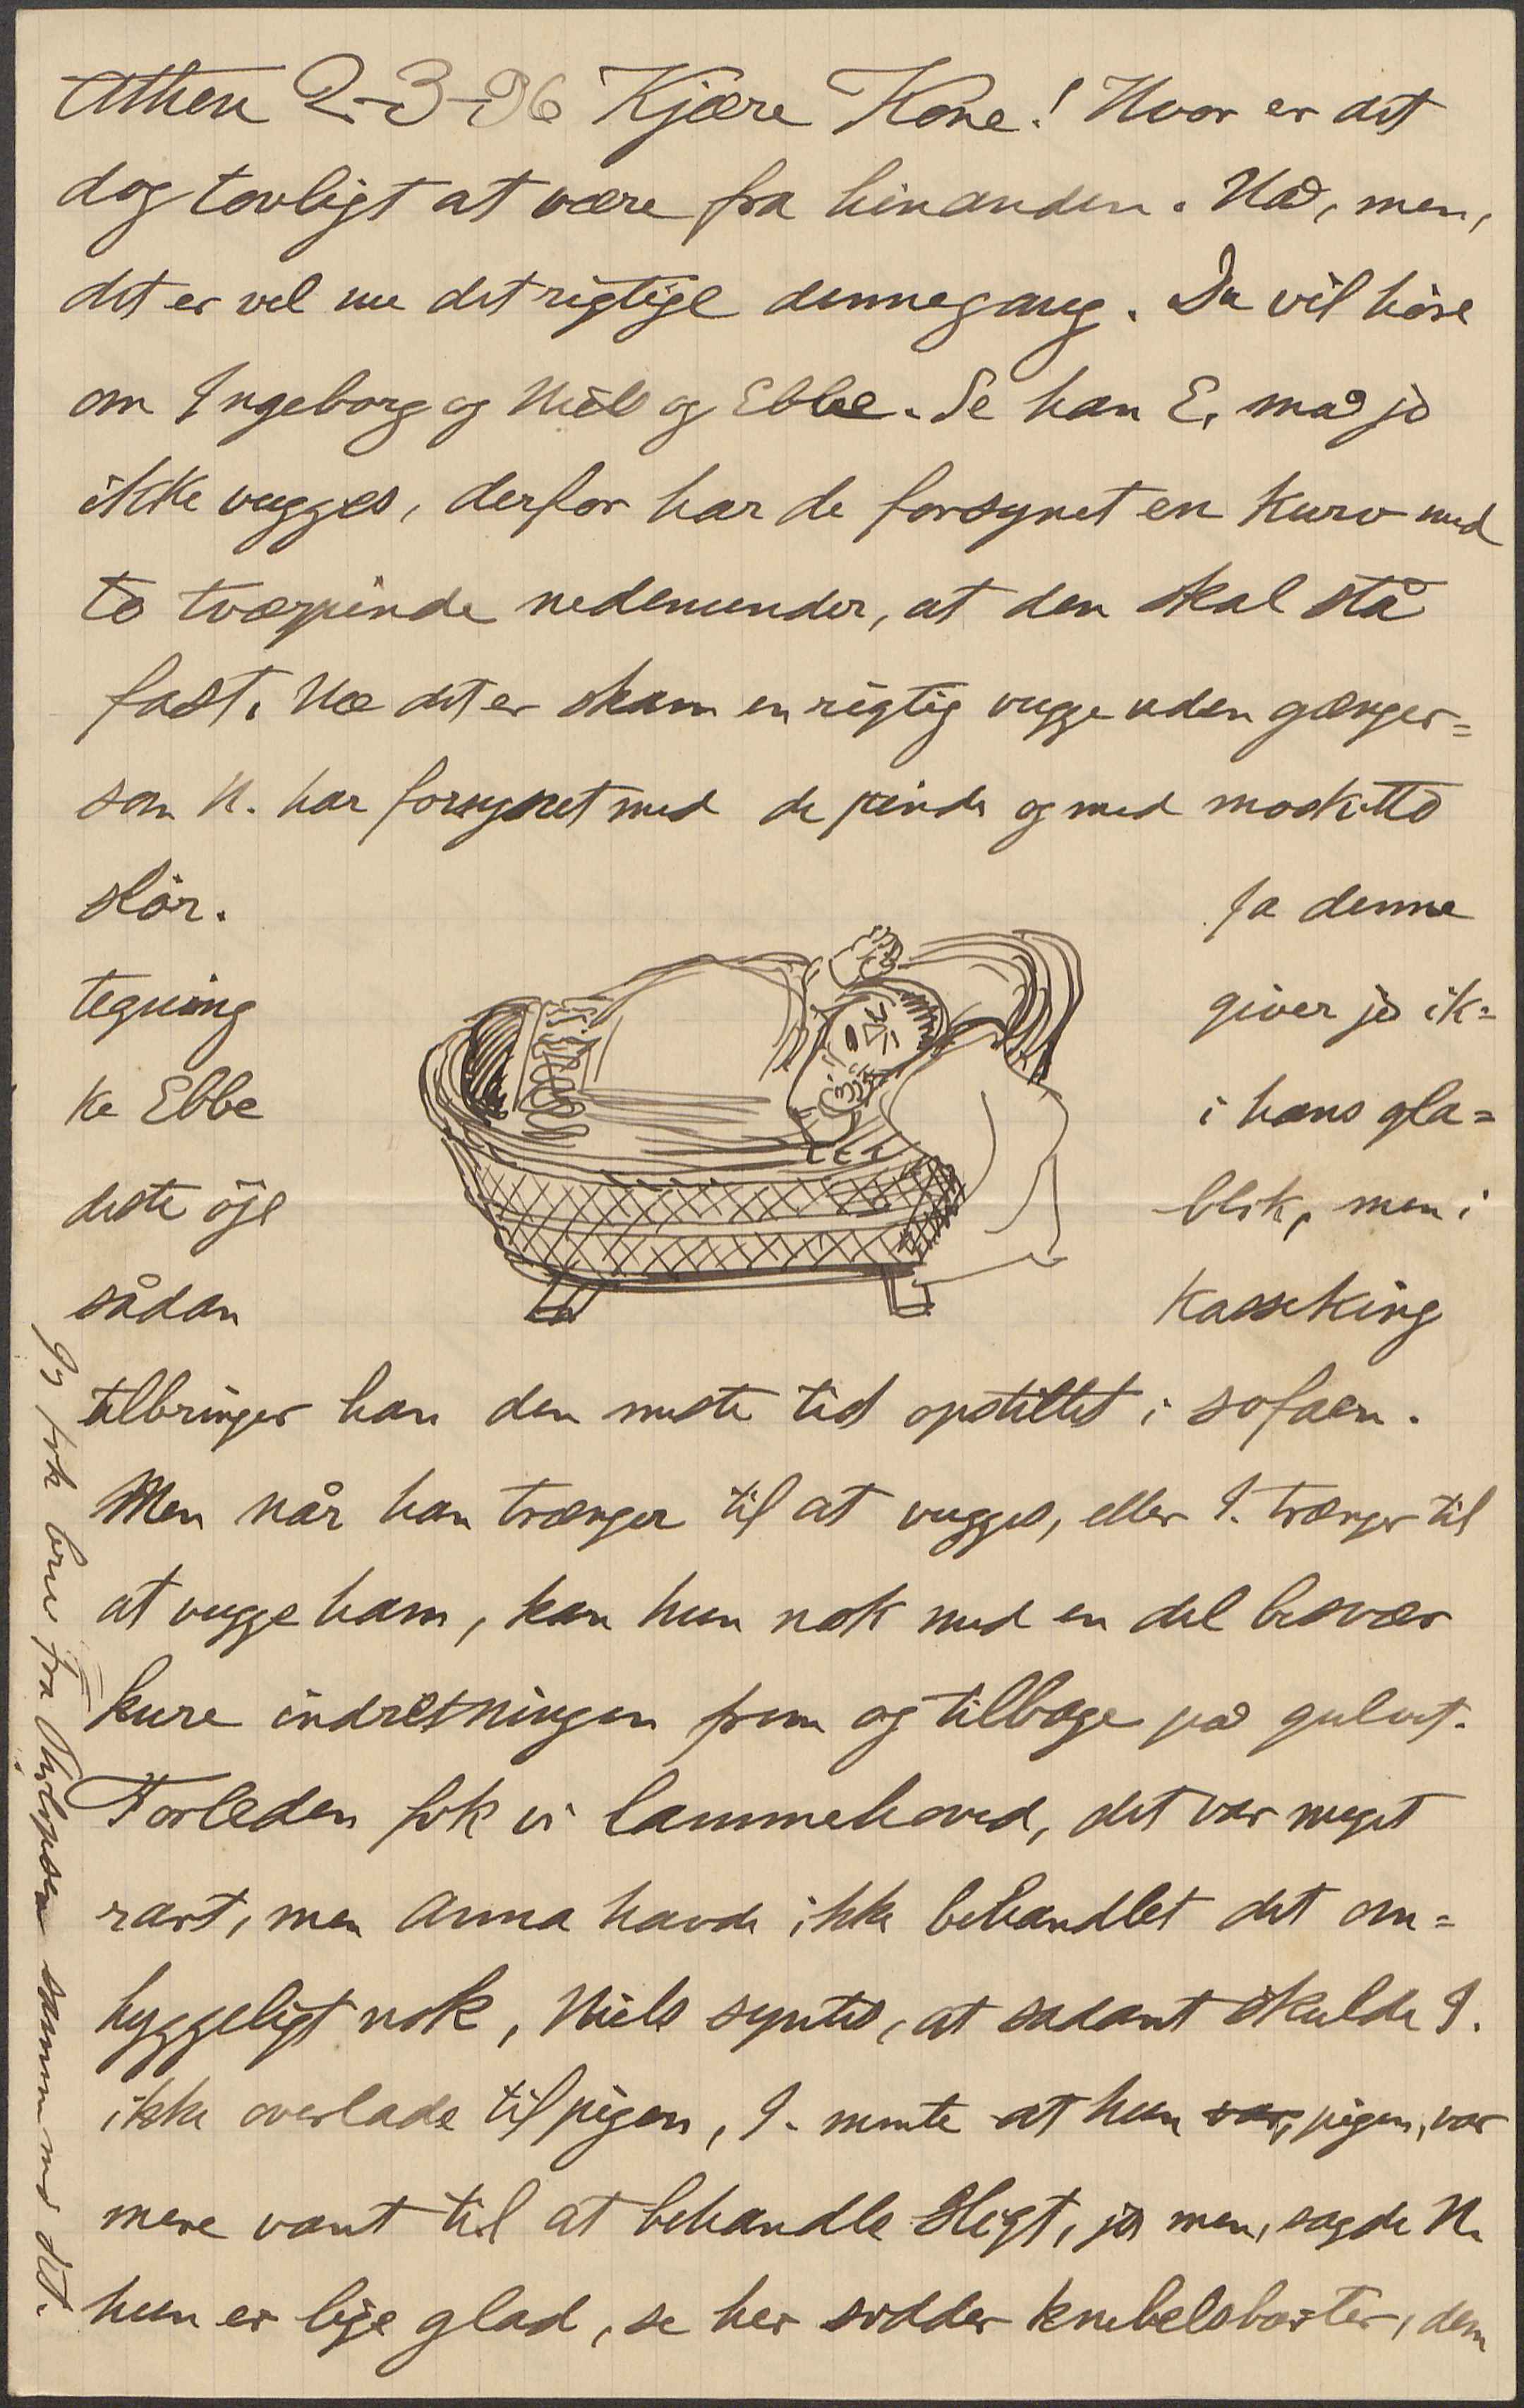 Athen 2-3-96 Kjære Kone! Hvor er det
dog tovligt at være fra hinanden. Nå, men,
det er vel nu det rigtige dennegang. Du vil höre
om Ingeborg og Niels og Ebbe. Se han E. må jo
ikke vugges, derfor har de forsynet en kurv med
to tværpinde nedenunder, at den skal stå
fast. Næ det er skam en rigtig vugge uden gænger=
som N. har forsynet med de pinde og med moskitto
slör. Ja denne
tegning giver jo ik=
ke Ebbe i hans gla=
deste öje blik, men i
sådan kasseking
tilbringer han den meste tid opstillet i sofaen.
Men når han trænger til at vugges, eller I. trænger til
at vugge ham, kan hun nok med en del besvær
kure indretningen frem og tilbage på gulvet.
Forleden fik vi lammehoved, det var meget
rart, men Anna havde ikke behandlet det om=
hyggeligt nok, Niels syntes, at sadant skulde I.
ikke overlade til pigen, I. mente at hun var, pigen, var
mere vant til at behandle sligt, ja men, sagde N.
hun er lige glad, se her sidder knebelsbarter, dem
Jeg fik brev fra Philipsen sammen med dit.